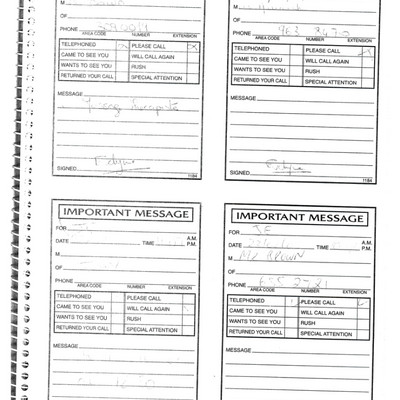 M
OF
PHONE
AREA CODE NUMBER EXTENSION
TELEPHONED PLEASE CALL
CAME TO SEE YOU WILL CALL AGAIN
WANTS TO SEE YOU RUSH
RETURNED YOUR CALL SPECIAL ATTENTION
MESSAGE
SIGNED
1184
M
OF
PHONE
AREA CODE NUMBER EXTENSION
TELEPHONED PLEASE CALL
CAME TO SEE YOU WILL CALL AGAIN
WANTS TO SEE YOU RUSH
RETURNED YOUR CALL SPECIAL ATTENTION
MESSAGE
SIGNED
1184
IMPORTANT MESSAGE
FOR
A.M.
DATE TIME P.M.
M
OF
PHONE
AREA CODE NUMBER EXTENSION
TELEPHONED PLEASE CALL
CAME TO SEE YOU WILL CALL AGAIN
WANTS TO SEE YOU RUSH
RETURNED YOUR CALL SPECIAL ATTENTION
MESSAGE
IMPORTANT MESSAGE
FOR JE
A.M.
DATE TIME P.M.
M Mr BROWN
OF
PHONE
AREA CODE NUMBER EXTENSION
TELEPHONED PLEASE CALL
CAME TO SEE YOU WILL CALL AGAIN
WANTS TO SEE YOU RUSH
RETURNED YOUR CALL SPECIAL ATTENTION
MESSAGE